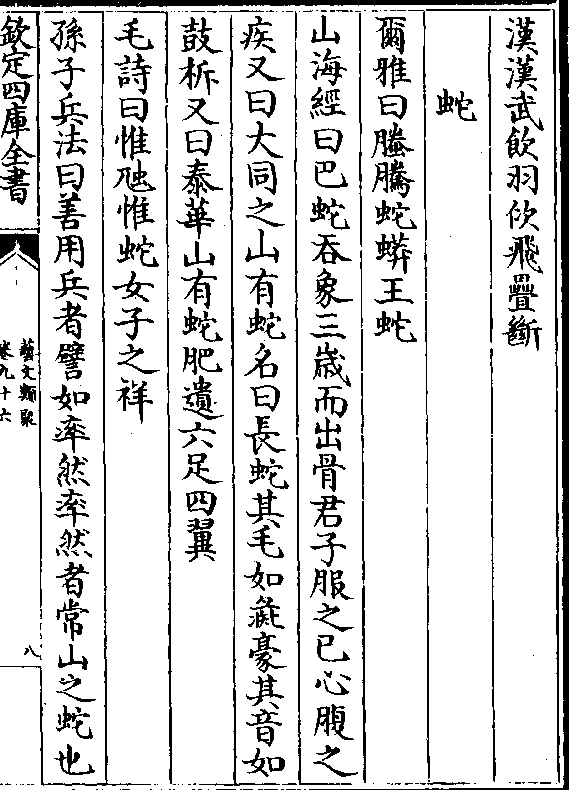 漢漢武飲羽佽飛疊斷
蛇
爾雅曰螣騰蛇蟒王蛇
山海經曰巴蛇吞象三歲而出骨君子服之已心腹之
疾又曰大同之山有蛇名曰長蛇其毛如彘豪其音如
鼓柝又曰泰華山有蛇肥遺六足四翼
毛詩曰惟虺惟蛇女子之祥
孫子兵法曰善用兵者譬如率然率然者常山之蛇也
欽定四庫全書
藝文類聚
卷九十六
八